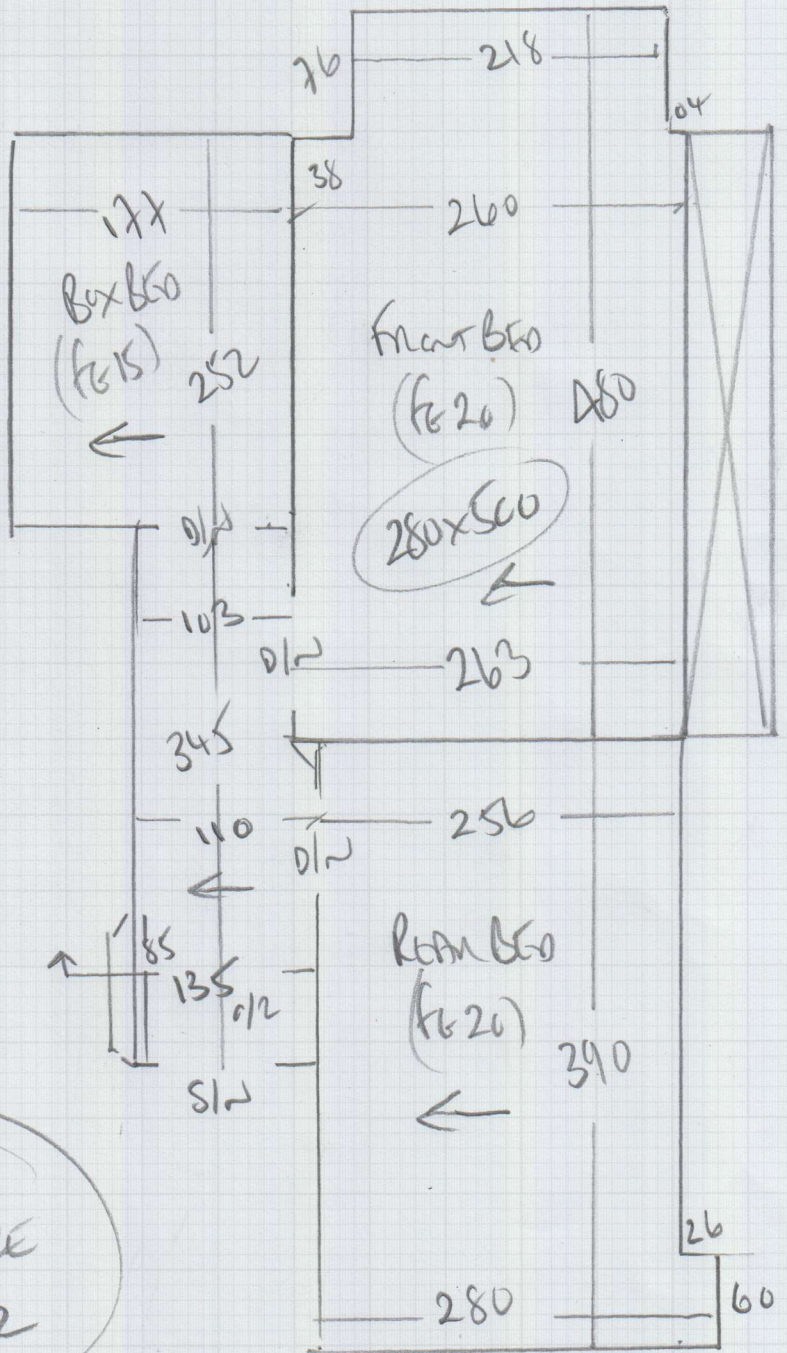 76
218
04
38
177
260
BOX BED
(FE 15)
252
FRONT BED
(FE 20)
480
280x500
D/N
103
D/N
263
345
110
256
D/N
85
135
REAR BED
(FE 20)
390
S/N
26
280
60